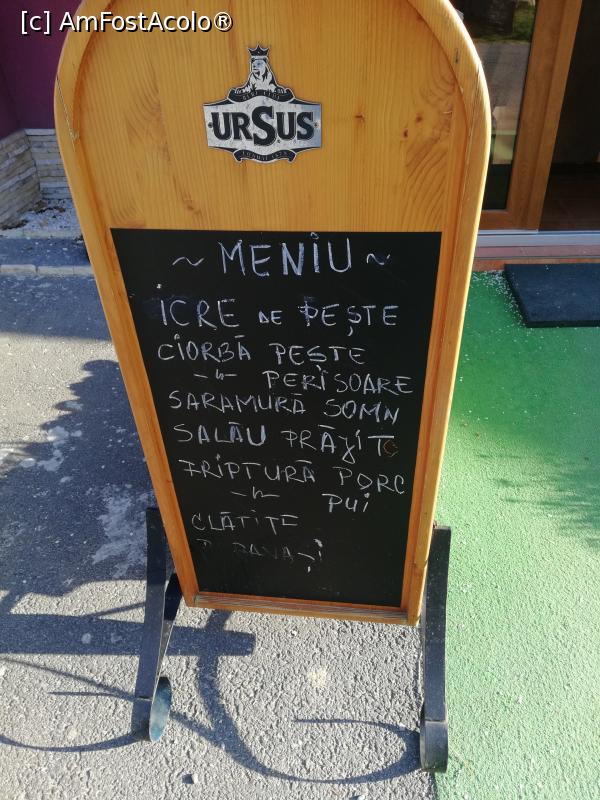 [c] AmFostAcolo®
URSUS
~ MENIU ~
ICRE DE PEȘTE
CIORBĂ PEȘTE
-"- PERIȘOARE
SARAMURĂ SOMN
SALĂU PRĂJIT
FRIPTURĂ PORC
-"- PUI
CLĂTITE